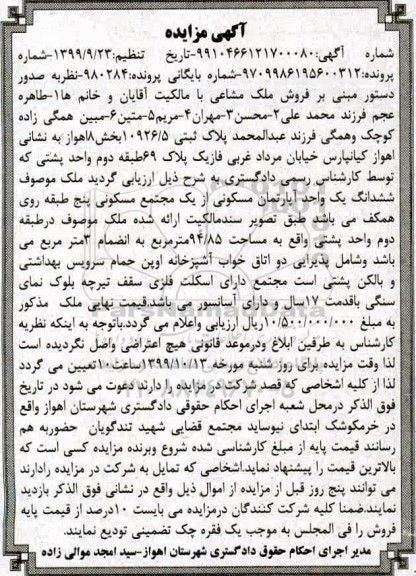 آگهی مزایده
شماره آگهی:۹۹۱۰۴۶۶۱۲۱۷۰۰۰۸۰-تاریخ تنظیم:۱۳۹۹/۹/۲۳-شماره
پرونده:۹۷۰۹۹۸۶۱۹۵۶۰۰۳۱۲-شماره بایگانی پرونده:۹۸۰۲۸۴-نظربه صدور
دستور مبنی بر فروش ملک مشاعی با مالکیت آقایان و خانم ها۱-طاهره
عجم فرزند محمد علی۲-محسن۳-مهران۴-مریم۵-متین۶-مبین همگی زاده
کوچک وهمگی فرزند عبدالمحمد پلاک ثبتی ۱۰۹۲۶/۵بخش۸اهواز به نشانی
اهواز کیانپارس خیابان مرداد غربی فازیک پلاک ۶۹طبقه دوم واحد پشتی که
توسط کارشناس رسمی دادگستری به شرح ذیل ارزیابی گردید ملک موصوف
ششدانگ یک واحد آپارتمان مسکونی از یک مجتمع مسکونی پنج طبقه روی
همکف می باشد طبق تصویر سندمالکیت ارائه شده ملک موصوف درطبقه
دوم واحد پشتی واقع به مساحت ۹۴/۸۵مترمربع به انضمام ۳متر مربع می
باشد وشامل پذیرایی دو اتاق خواب آشپزخانه اوپن حمام سرویس بهداشتی
و بالکن پشتی است مجتمع دارای اسکلت فلزی سقف تیرچه بلوک نمای
سنگی باقدمت ۱۷سال و دارای آسانسور می باشد.قیمت نهایی ملک مذکور
به مبلغ ۱۰/۵۰۰/۰۰۰/۰۰۰ریال ارزیابی واعلام می گردد.باتوجه به اینکه نظریه
کارشناس به طرفین ابلاغ ودرموعد قانونی هیچ اعتراضی واصل نگردیده است
لذا وقت مزایده برای روز شنبه مورخه ۱۳۹۹/۱۰/۱۳ساعت۱۰تعیین می گردد
لذا از کلیه اشخاصی که قصد شرکت در مزایده را دارند دعوت می شود در تاریخ
فوق الذکر درمحل شعبه اجرای احکام حقوقی دادگستری شهرستان اهواز واقع
در خرمکوشک ابتدای نیوساید مجتمع قضایی شهید تندگویان حضوربه هم
رسانند قیمت پایه از مبلغ کارشناسی شده شروع وبرنده مزایده کسی است که
بالاترین قیمت را پیشنهاد نماید.اشخاصی که تمایل به شرکت در مزایده رادارند
می توانند پنج روز قبل از مزایده از اموال ذیل واقع در نشانی فوق الذکر بازدید
نمایند.ضمنا کلیه شرکت کنندگان درمزایده می بایست ۱۰درصد از قیمت پایه
فروش را فی المجلس به موجب یک فقره چک تضمینی تودیع نمایند.
مدیر اجرای احکام حقوق دادگستری شهرستان اهواز-سید امجد موالی زاده